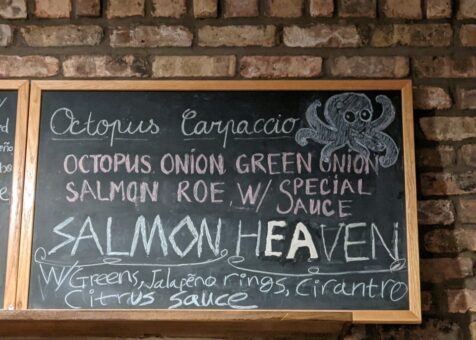 Octopus Carpaccio
OCTOPUS, ONION, GREEN ONION
SALMON ROE W/ SPECIAL
SAUCE
SALMON HEAVEN
W/Greens, Jalapeña rings, Cirantro
Citrus sauce